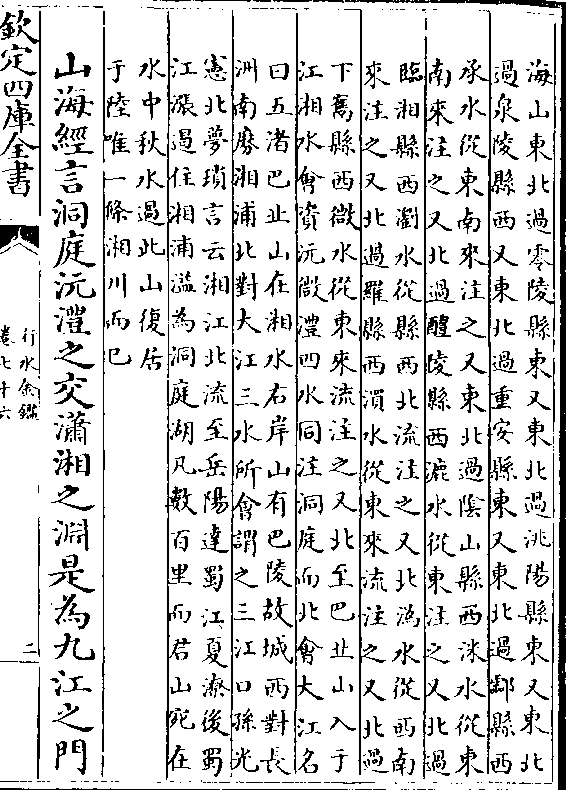 海山東北過零陵縣東又東北過洮陽縣東又東北
過泉陵縣西又東北過重安縣東又東北過酃縣西
承水從東南來注之又東北過陰山縣西洣水從東
南來注之又北過醴陵縣西漉水從東注之又北過
臨湘縣西瀏水從縣西北流注之又北溈水從西南
來注之又北過羅縣西水從東來流注之又北過
下雋縣西微水從東來流注之又北至巴丘山入于
江湘水會資沅微澧四水同注洞庭而北會大江名
曰五渚巴丘山在湘水右岸山有巴陵故城西對長
洲南磨湘浦北對大江三水所會謂之三江口孫光
憲北夢瑣言云湘江北流至岳陽達蜀江夏潦後蜀
江漲遏住湘浦溢為洞庭湖凡數百里而君山宛在
水中秋水過此山復居
于陸唯一條湘川而已
山海經言洞庭沅澧之交瀟湘之淵是為九江之門
欽定四庫全書
行水金鑑
卷七十六
二